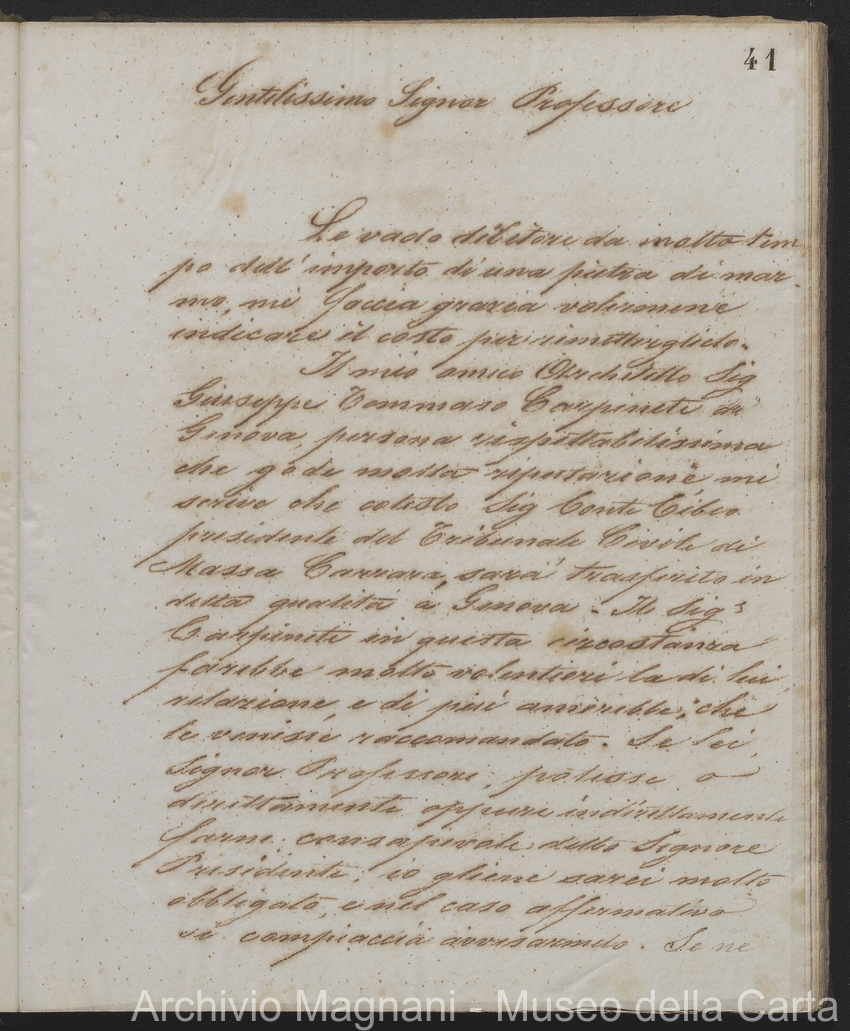 41
Gentilissimo Signor Professore
Le vado debitore da molto tem
po dell' importo di una pietra di mar-
mo, mi faccia grazia volermene
indicare il costo per rimetterglielo.
Il mio amico Architetto Sig
Giuseppe Tommaso Carpineti di
Genova, persona rispettabilissima
che gode molta riputazione mi
scrive che cotesto Sig Conte Cibeo
presidente del Tribunale Civile di
Massa Carrara, sarà trasferito in
detta qualità a Genova - Il Sigr
Carpineti in questa circostanza
farebbe molto volentieri la di lui
relazione, e di più amerebbe, che
le venisse raccomandato. Se lei,
Signor Professore, potesse o
direttamente oppure indirettamente
farne consapevole detto Signore
Presidente, io gliene sarei molto
obbligato, e nel caso affermativo
si compiaccia avvisarmelo. Se ne
Archivio Magnani - Museo della Carta